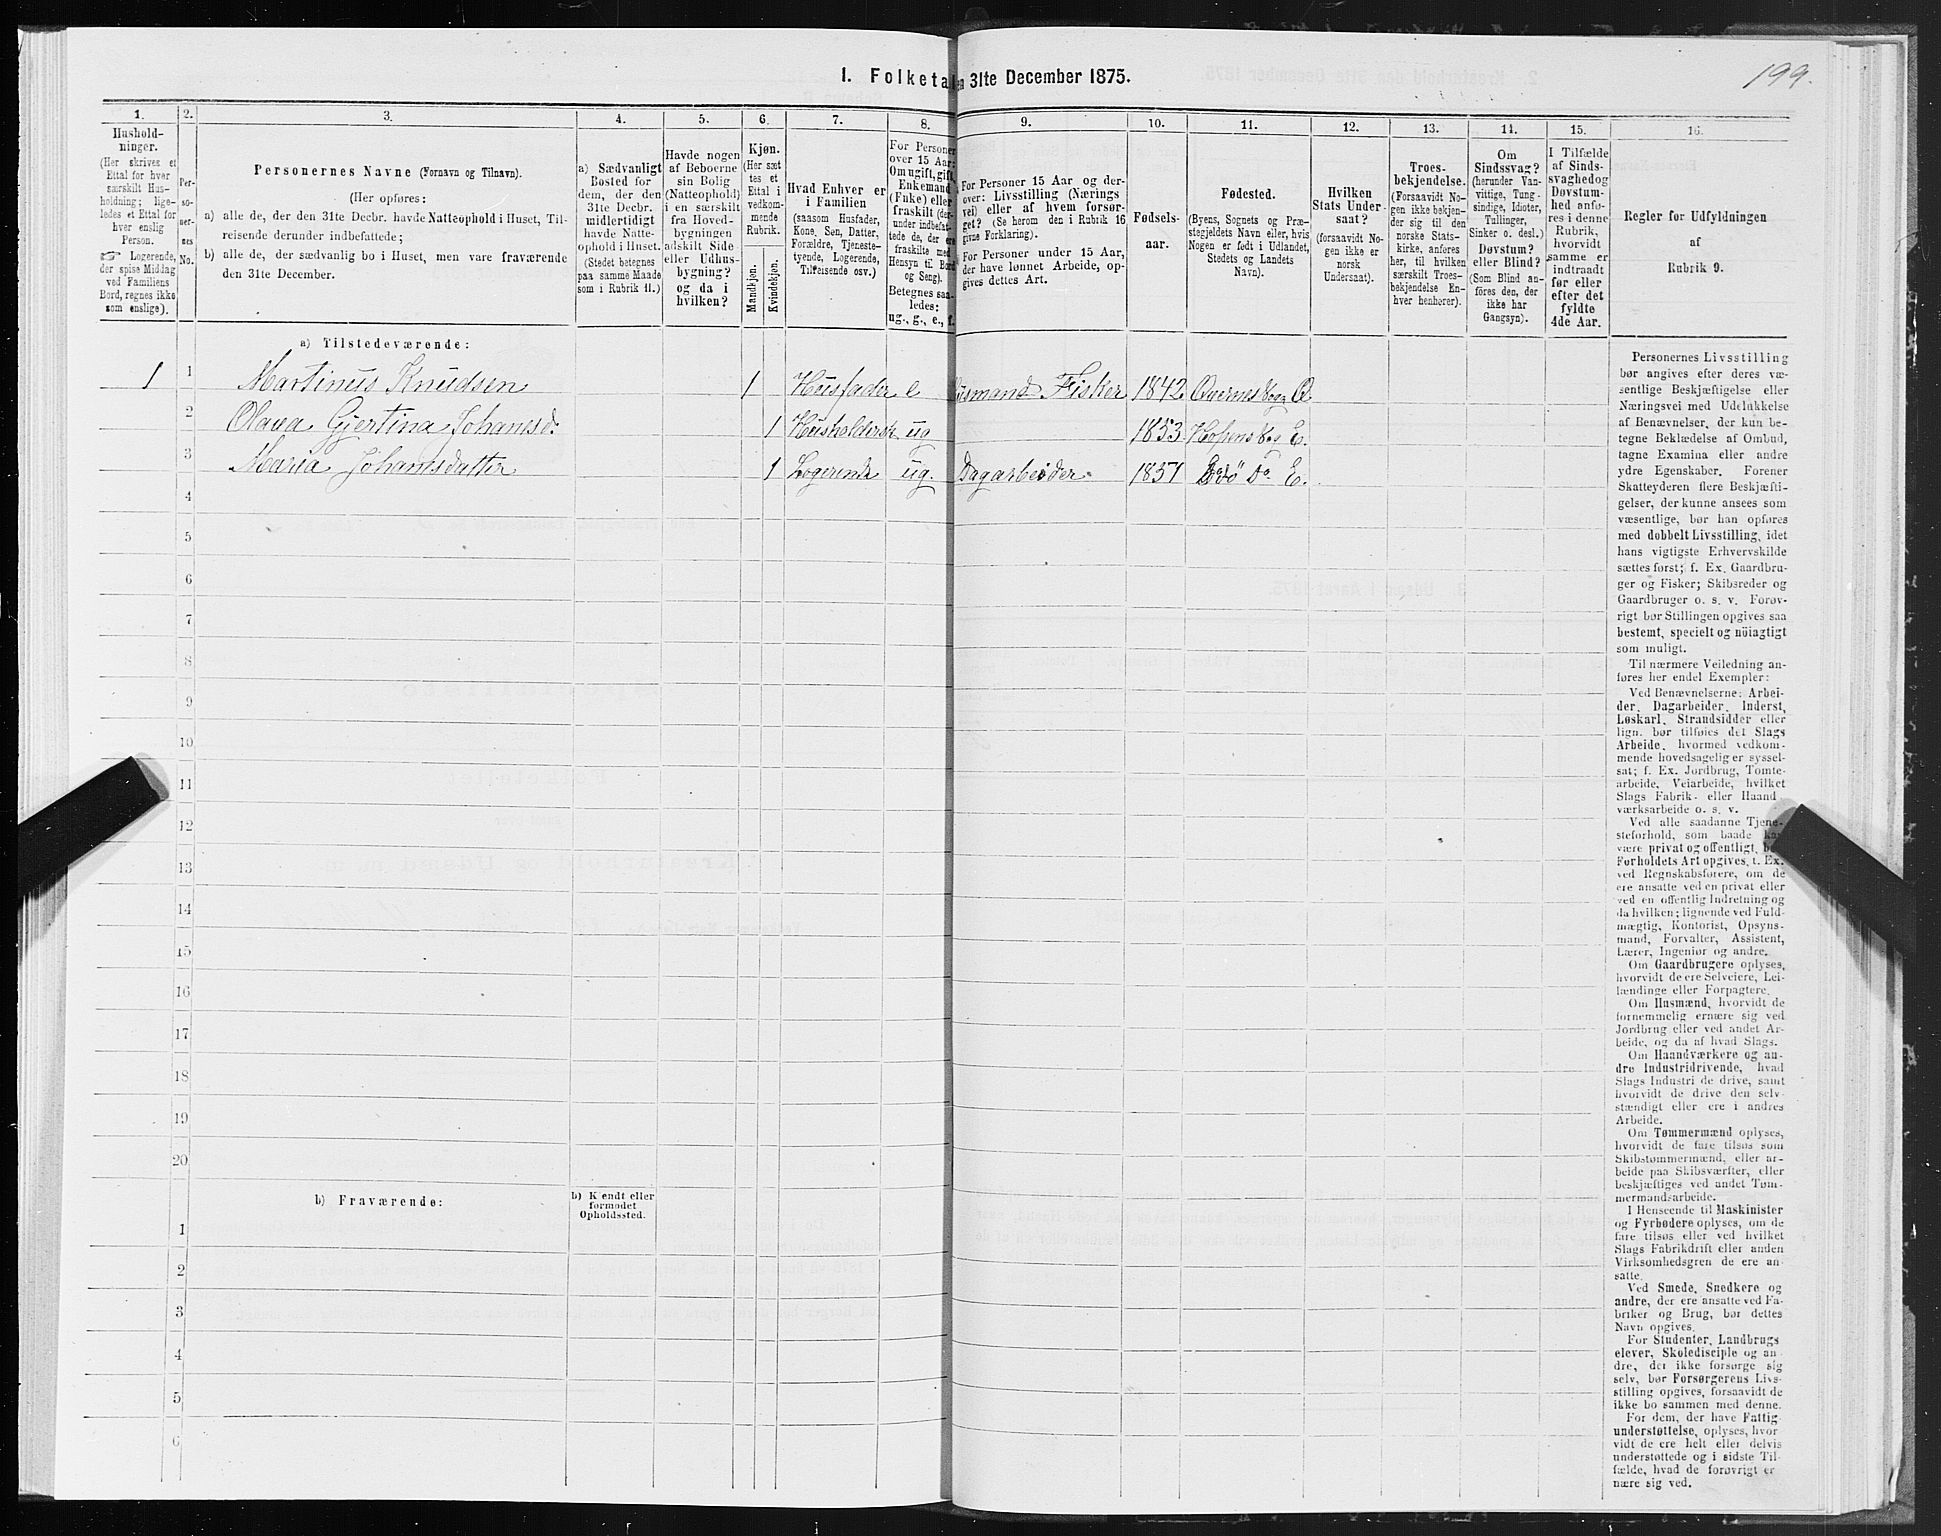 199.
1. Folketa en 31te December 1875.
1. 2. 3. 4. 5. 6. 7. 8. 9. 10. 11. 12. 13. 14. 15. 16.
Hushold-
ninger.
(Her skrives et
Ettal for hver
særskilt Hus-
holdning; lige-
ledes et Ettal for
hver enslig
Person.
☞ Logerende,
der spise Middag
ved Familiens
Bord, regnes ikke
som enslige).
Per-
so-
ner-
nes
No.
Personernes Navne (Fornavn og Tilnavn).
(Her opføres:
a) alle de, der den 31te Decbr. havde Natteophold i Huset, Til-
reisende derunder indbefattede;
b) alle de, der sædvanlig bo i Huset, men vare fraværende
den 31te December.
a) Sædvanligt
Bosted for
dem, der den
31te Decbr.
midlertidigt
havde Natte-
ophold i Huset.
(Stedet betegnes
paa samme Maade
som i Rubrik 11.)
Havde nogen
af Beboerne
sin Bolig
(Natteophold)
i en særskilt
fra Hoved-
bygningen
adskilt Side
eller Udhus-
bygning?
og da i
hvilken?
Kjøn.
(Her sæt
tes et
Ettal i
vedkom-
mende
Rubrik.
Mandkjøn.
Kvindekjøn.
Hvad Enhver er
i Familien
(saasom Husfader,
Kone, Søn, Datter,
Forældre, Tjeneste-
tyende, Logerende,
Tilreisende osv.)
For Personer
over 15 Aar:
Om ugift, gift,
Enkemand
(Enke) eller
fraskilt (der-
under indbefat-
tede de, der ere
fraskilte med
Hensyn til Bord
og Seng).
Betegnes saa-
ledes:
ug., g., e., f.
For Personer 15 Aar og der-
over: Livsstilling (Nærings
vei) eller af hvem forsør-
get? (Se herom den i Rubrik 16
givne Forklaring).
For Personer under 15 Aar,
der have lønnet Arbeide, op-
gives dettes Art.
Fødsels-
aar.
Fødested.
(Byens, Sognets og Præ-
stegjeldets Navn eller, hvis
Nogen er født i Udlandet,
Stedets og Landets
Navn).
Hvilken
Stats Under
saat?
(forsaavidt No-
gen ikke er
norsk
Undersaat).
Troes-
bekjendelse.
(Forsaavidt No-
gen ikke bekjen-
der sig til den
norske Stats-
kirke, anføres
her, til hvilken
særskilt Troes-
bekjendelse En-
hver henhører).
Om
Sindssvag?
(herunder Van-
vittige, Tung-
sindige, Idioter,
Tullinger,
Sinker o. desl.)
Døvstum?
eller Blind?
(Som Blind an-
føres den, der
ikke har
Gangsyn).
I Tilfælde
af Sinds-
svaghed og
Døvstum-
hed anfø-
res i denne
Rubrik,
hvorvidt
samme er
indtraadt
før eller
efter det
fyldte
4de Aar.
Regler for Udfyldningen
af
Rubrik 9.
a) Tilstedeværende:
1 1 Martinus Knudsen 1 Husfader e usmand Fisker 1842
2 Olava Gjertina Johanesd. 1 ug 1853
3 Maria Johanesdatter 1 Logerende ug. Dagarbeider 1851
4
5
6
7
8
9
10
11
12
13
14
15
16
17
18
19
20
b) Fraværende:
b) Kjendt eller
formodet
Opholdssted.
1
2
3
4
5
6
Personernes Livsstilling
bør angives efter deres væ-
sentlige Beskjæftigelse eller
Næringsvei med Udelukkelse
af Benævnelser, der kun be-
tegne Beklædelse af Ombud,
tagne Examina eller andre
ydre Egenskaber. Forener
Skatteyderen flere Beskjæfti-
gelser, der kunne ansees som
væsentlige, bør han opføres
med dobbelt Livsstilling, idet
hans vigtigste Erhvervskilde
sættes først; f. Ex. Gaardbru-
ger og Fisker; Skibsreder og
Gaardbruger o. s. v. Forøv-
rigt bør Stillingen opgives saa
bestemt, specielt og nøiagtigt
som muligt.
Til nærmere Veiledning an-
føres her endel Exempler:
Ved Benævnelserne: Arbei-
der, Dagarbeider, Inderst,
Løskarl, Strandsidder eller
lign. bør tilføies det Slags
Arbeide, hvormed vedkom-
mende hovedsagelig er syssel-
sat; f. Ex. Jordbrug, Tomte-
arbeide, Veiarbeide, hvilket
Slags Fabrik- eller Haand
værksarbeide o. s. v.
Ved alle saadanne Tjene-
steforhold, som baade
være privat og offentligt,
Forholdets Art opgives, t. Ex.
ved Regnskabsførere, om de
ere ansatte ved en privat eller
ved en offentlig Indretning og
da hvilken; lignende ved Fuld-
mægtig, Kontorist, Opsyns-
mand, Forvalter, Assistent,
Lærer, Ingeniør og andre.
Om Gaardbrugere oplyses,
hvorvidt de ere Selveiere, Lei-
lændinge eller Forpagtere.
Om Husmænd, hvorvidt de
fornemmelig ernære sig ved
Jordbrug eller ved andet Ar-
beide, og da af hvad Slags.
Om Haandværkere og an-
dre Industridrivende, hvad
Slags Industri de drive, samt
hvorvidt de drive den selv-
stændigt eller ere i andres
Arbeide.
Om Tømmermænd oplyses,
hvorvidt de fare tilsøs som
Skibstømmermænd, eller ar-
beide paa Skibsværfter, eller
beskjæftiges ved andet Tøm-
mermandsarbeide.
I Henseende til Maskinister
og Fyrbødere oplyses, om de
fare tilsøs eller ved hvilket
Slags Fabrikdrift eller anden
Virksomhedsgren de ere an-
satte.
Ved Smede, Snedkere og
andre, der ere ansatte ved Fa-
briker og Brug, bør dettes
Navn opgives.
For Studenter, Landbrugs
elever, Skoledisciple og an
dre, der ikke forsørge sig
selv, bør Forsørgerens Livs-
stilling opgives, forsaavidt de
ikke bo sammen med denne.
For dem, der have Fattig-
understøttelse, oplyses, hvor
vidt de ere helt eller delvis
understøttede og i sidste Til-
fælde, hvad de forøvrigt er
nære sig ved.